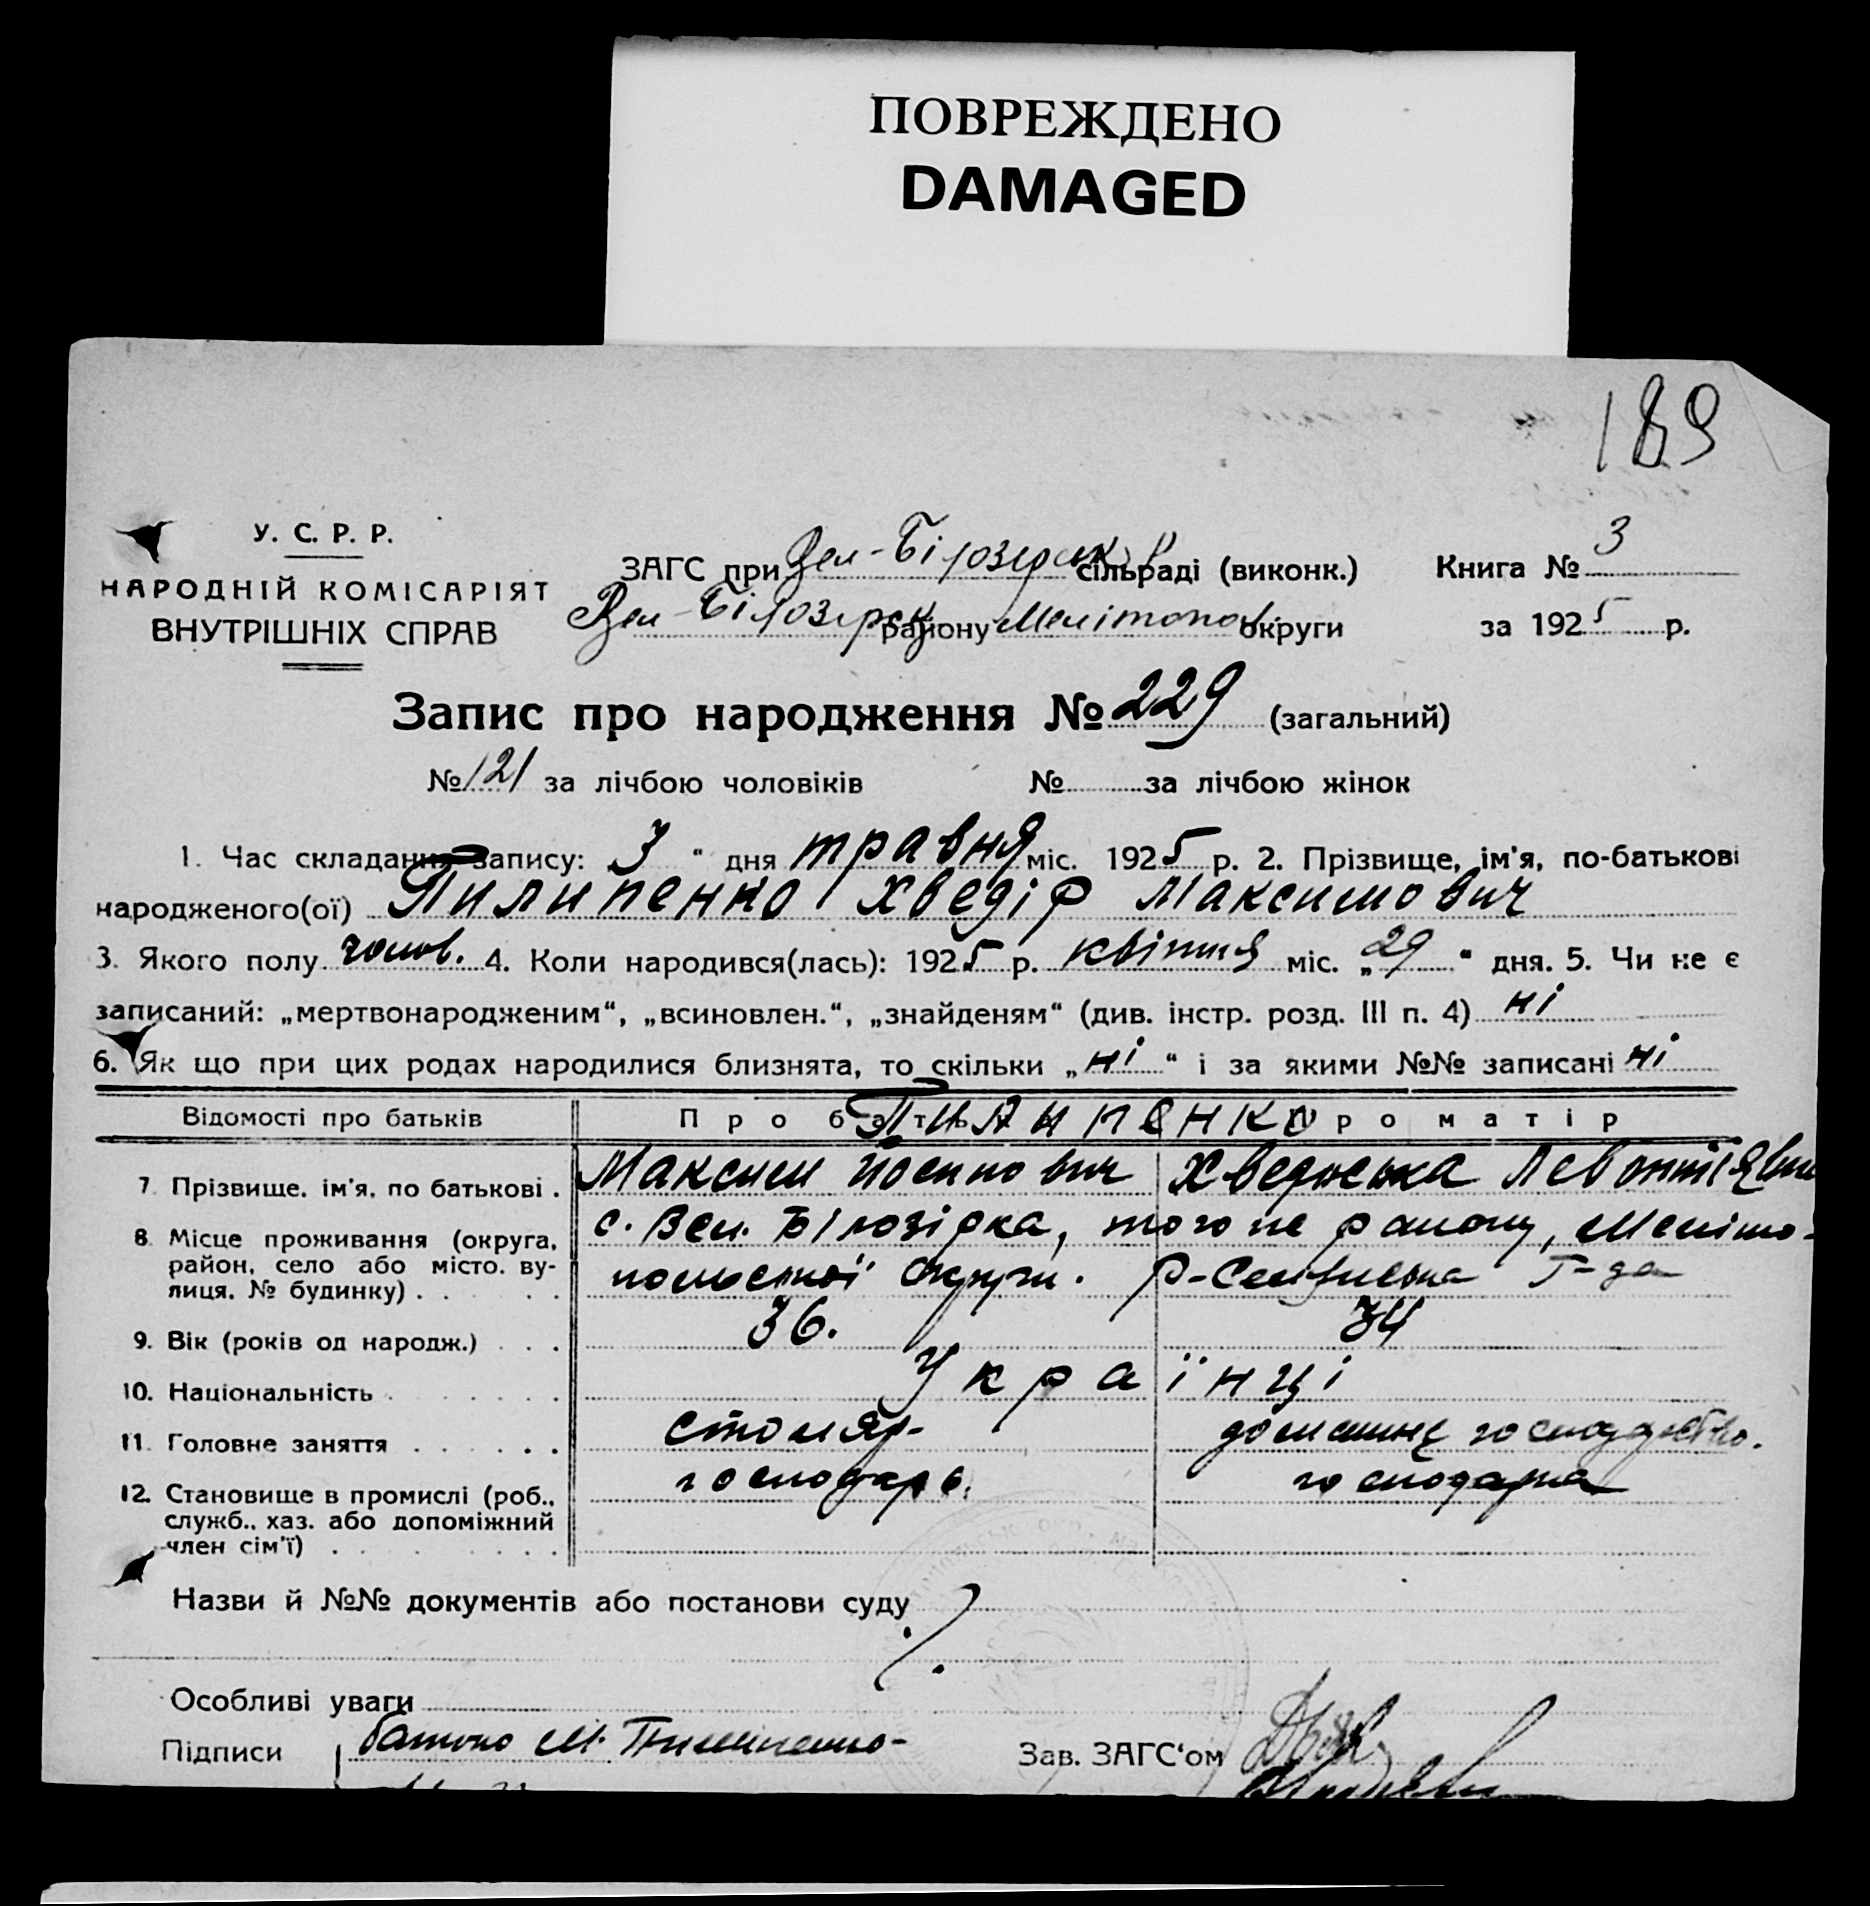 ПОВРЕЖДЕНО
DAMAGED
189
У. С. Р. Р.
НАРОДНІЙ КОМІСАРІЯТ
ВНУТРІШНІХ СПРАВ
ЗАГС при Вел-Білозерськ сільраді (виконк.) Книга № 3
Вел-Білозерськ району Мелітопол округи за 1925 р.
Запис про народження № 229 (загальний)
№ 121 за лічбою чоловіків № за лічбою жінок
1. Час складання запису: 3 " дня травня міс. 1925 р. 2. Прізвище, ім'я, по-батькові
народженого(ої) Пилипенко Хведір Максимович
3. Якого полу чолов. 4. Коли народився(лась): 1925 р. квітня міс. „29 " дня. 5. Чи не є
записаний: „мертвонародженим", „всиновлен.", „знайденям" (див. інстр. розд. III п. 4) ні
6. Як що при цих родах народилися близнята, то скільки „ні " і за якими №№ записані ні
Відомості про батьків Про батька Про матір
Пилипенко
7. Прізвище, ім'я, по батькові . Максим Йосипович Хведоська
8. Місце проживання (округа, район, село або місто, вулиця, № будинку) . . . . с. Вел. Білозірка, того же району, Меліто-
польської округи.
9. Вік (років од народж.) . . . 36. 34
10. Національність . . . . . . . Українці
11. Головне заняття . . . . . . столяр. домашнє господарство.
12. Становище в промислі (роб., служб., хаз. або допоміжний член сім'ї) . . . . . . . господарь господарка
Назви й №№ документів або постанови суду
Особливі уваги
Підписи батько М. Пилипенко Зав. ЗАГС'ом